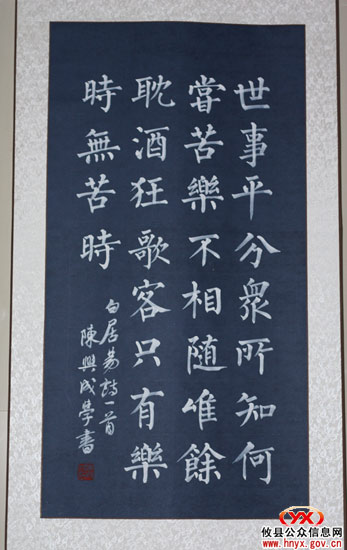 世事平分衆所知何
嘗苦樂不相随唯餘
耽酒狂歌客只有樂
時無苦時
白居易詩一首
陳興成學書
YX
攸县公众信息网
www.hnyx.gov.cn